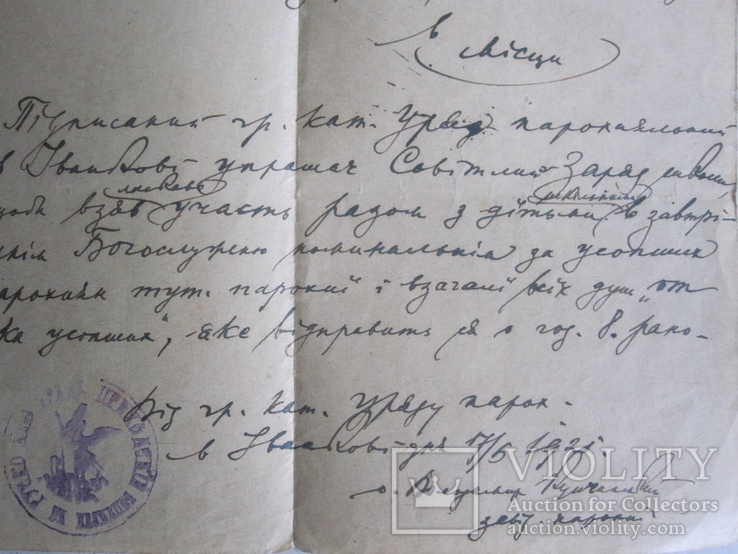 в
місци
Підписаний гр. кат. Уряд парохияльний
в Іванкові упрашає Світлий Заряд школи,
щоби взяв ласкаво участь радом з дітьми шкільними в завтрі-
шнім Богослуженю поминальнім за усопших
парохиян тут. парохиї і взагалі всіх душ „от
віка усопших“, яке відправить ся о год. 8. рано.
Від гр. кат. Уряду парох.
в Іванкові дня 17/6 1921
о.
зав. парохиї
VIOLITY
Auction for Collectors
auction.violity.com